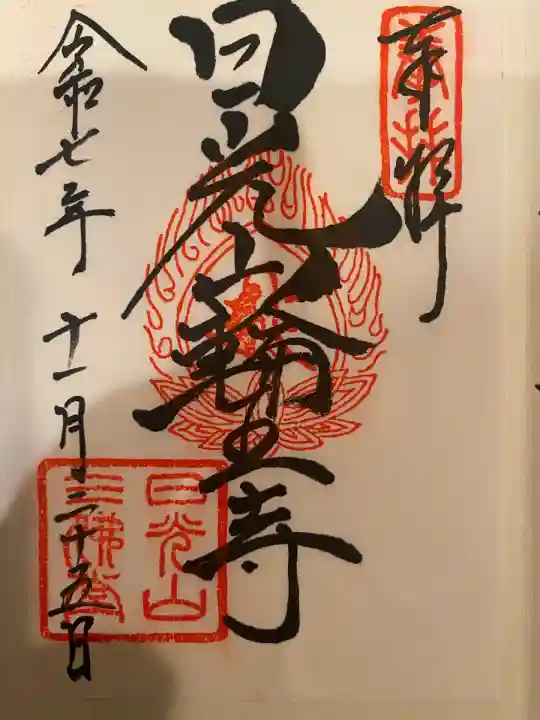 奉拝
奉拝
日光山
輪王寺
日光山
三佛堂
令和七年 十一月二十五日